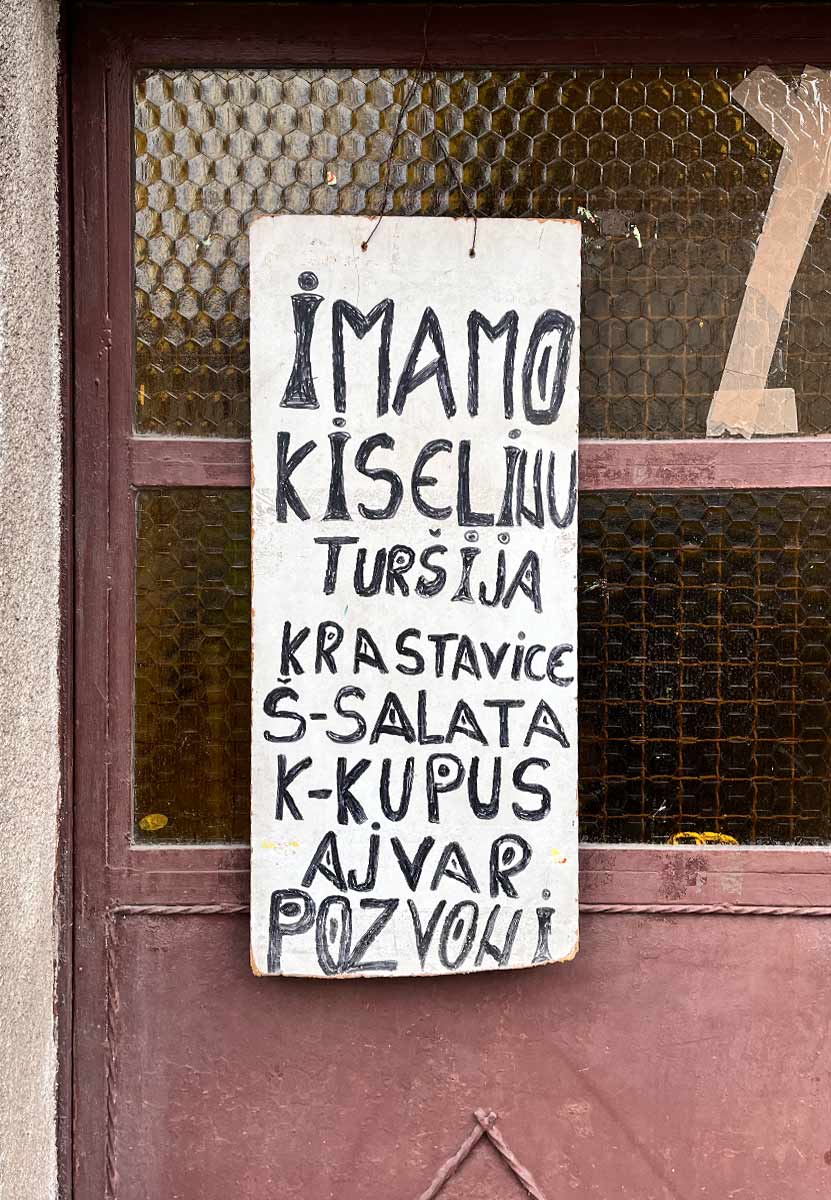 IMAMO
KISELINU
TURŠIJA
KRASTAVICE
Š-SALATA
K-KUPUS
AJVAR
POZVONI